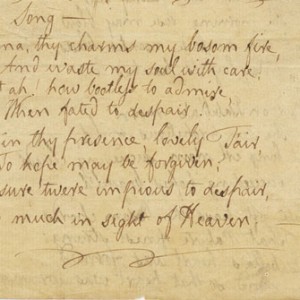 Song —
na, thy charms my bosom fire,
And waste my soul with care;
ah. how bootless to admire,
When fated to despair.
in thy presence, lovely Fair
To hope may be forgiven,
sure twere impious to despair,
much in sight of Heaven.